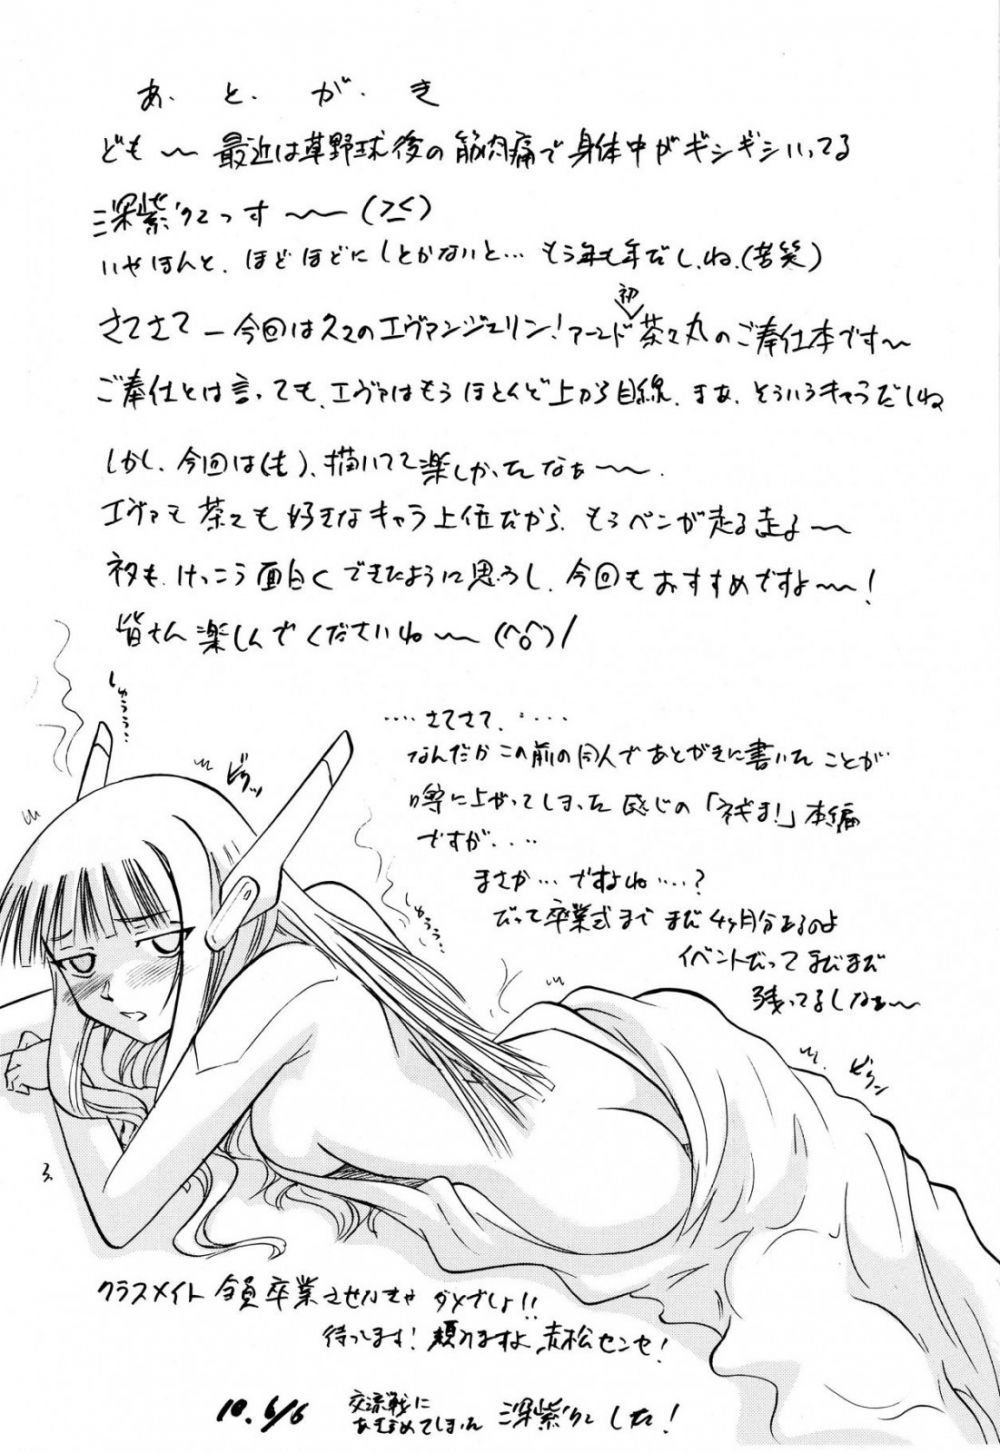 あ、と、が、き
ども〜最近は草野球後の筋肉痛で身体中がギシギシいってる
深紫っす〜〜(>_<)
いやほんと、ほどほどにしとかないと…もう年も年だし、ね、(苦笑)
さてさてー今回は久々のエヴァンジェリン!アーンド初茶々丸のご奉仕本です〜
ご奉仕とは言っても、エヴァはもうほとんど上から目線、まぁ、そういうキャラだしね
しかし、今回は(も)、描いてて楽しかったなぁ〜〜、
エヴァも茶々も好きなキャラ上位だから、もうペンが走る走る〜
ネタも、けっこう面白くできたように思うし、今回もおすすめですよ〜〜!
皆さん楽しんでくださいね〜〜(^o^)/
しゅううう…
‥‥さてさて、‥‥
なんだかこの前の同人であとがきに書いたことが
噂に上がってしまった感じの「ネギま!」本編
ですが、‥‥
まさか…ですよね…‥?
だって卒業式までまだ4ヶ月分あるのよ
イベントだってまだまだ
残ってるしなぁ〜
ビクッ
ビクン
クラスメイト全員卒業させなきゃダメでしょ!!
待ってます!頼みますよ、赤松センセ!
10.6/6
交流戦に
した!